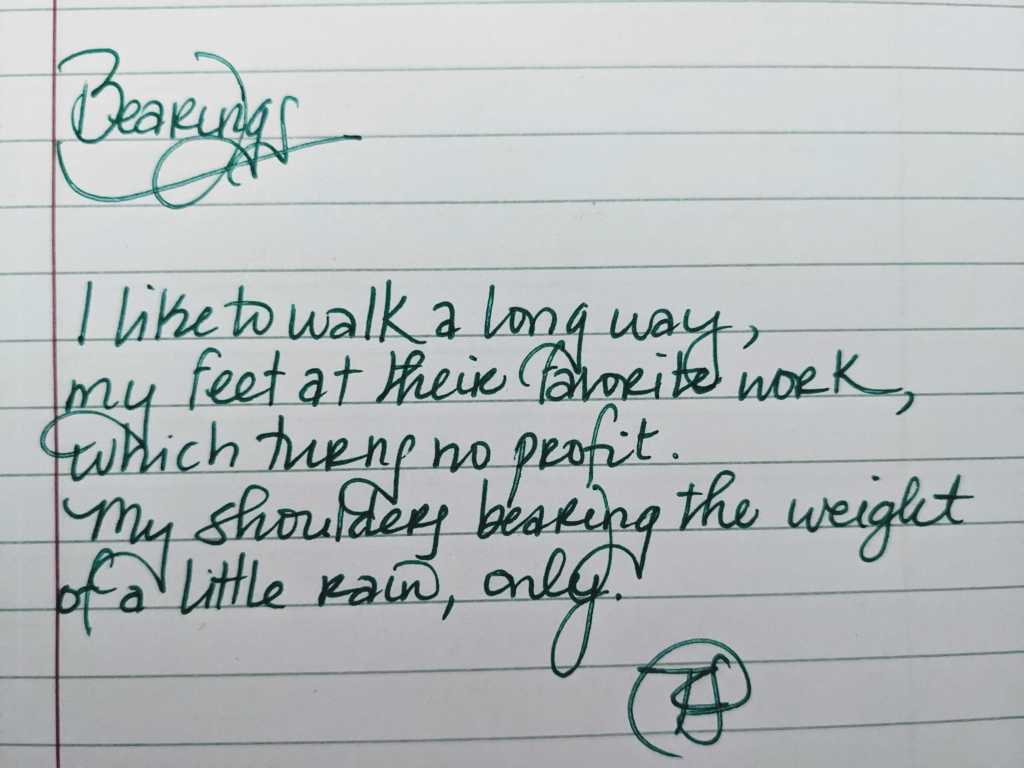 Bearings
I like to walk a long way,
my feet at their favorite work,
which turns no profit.
My shoulders bearing the weight
of a little rain, only.